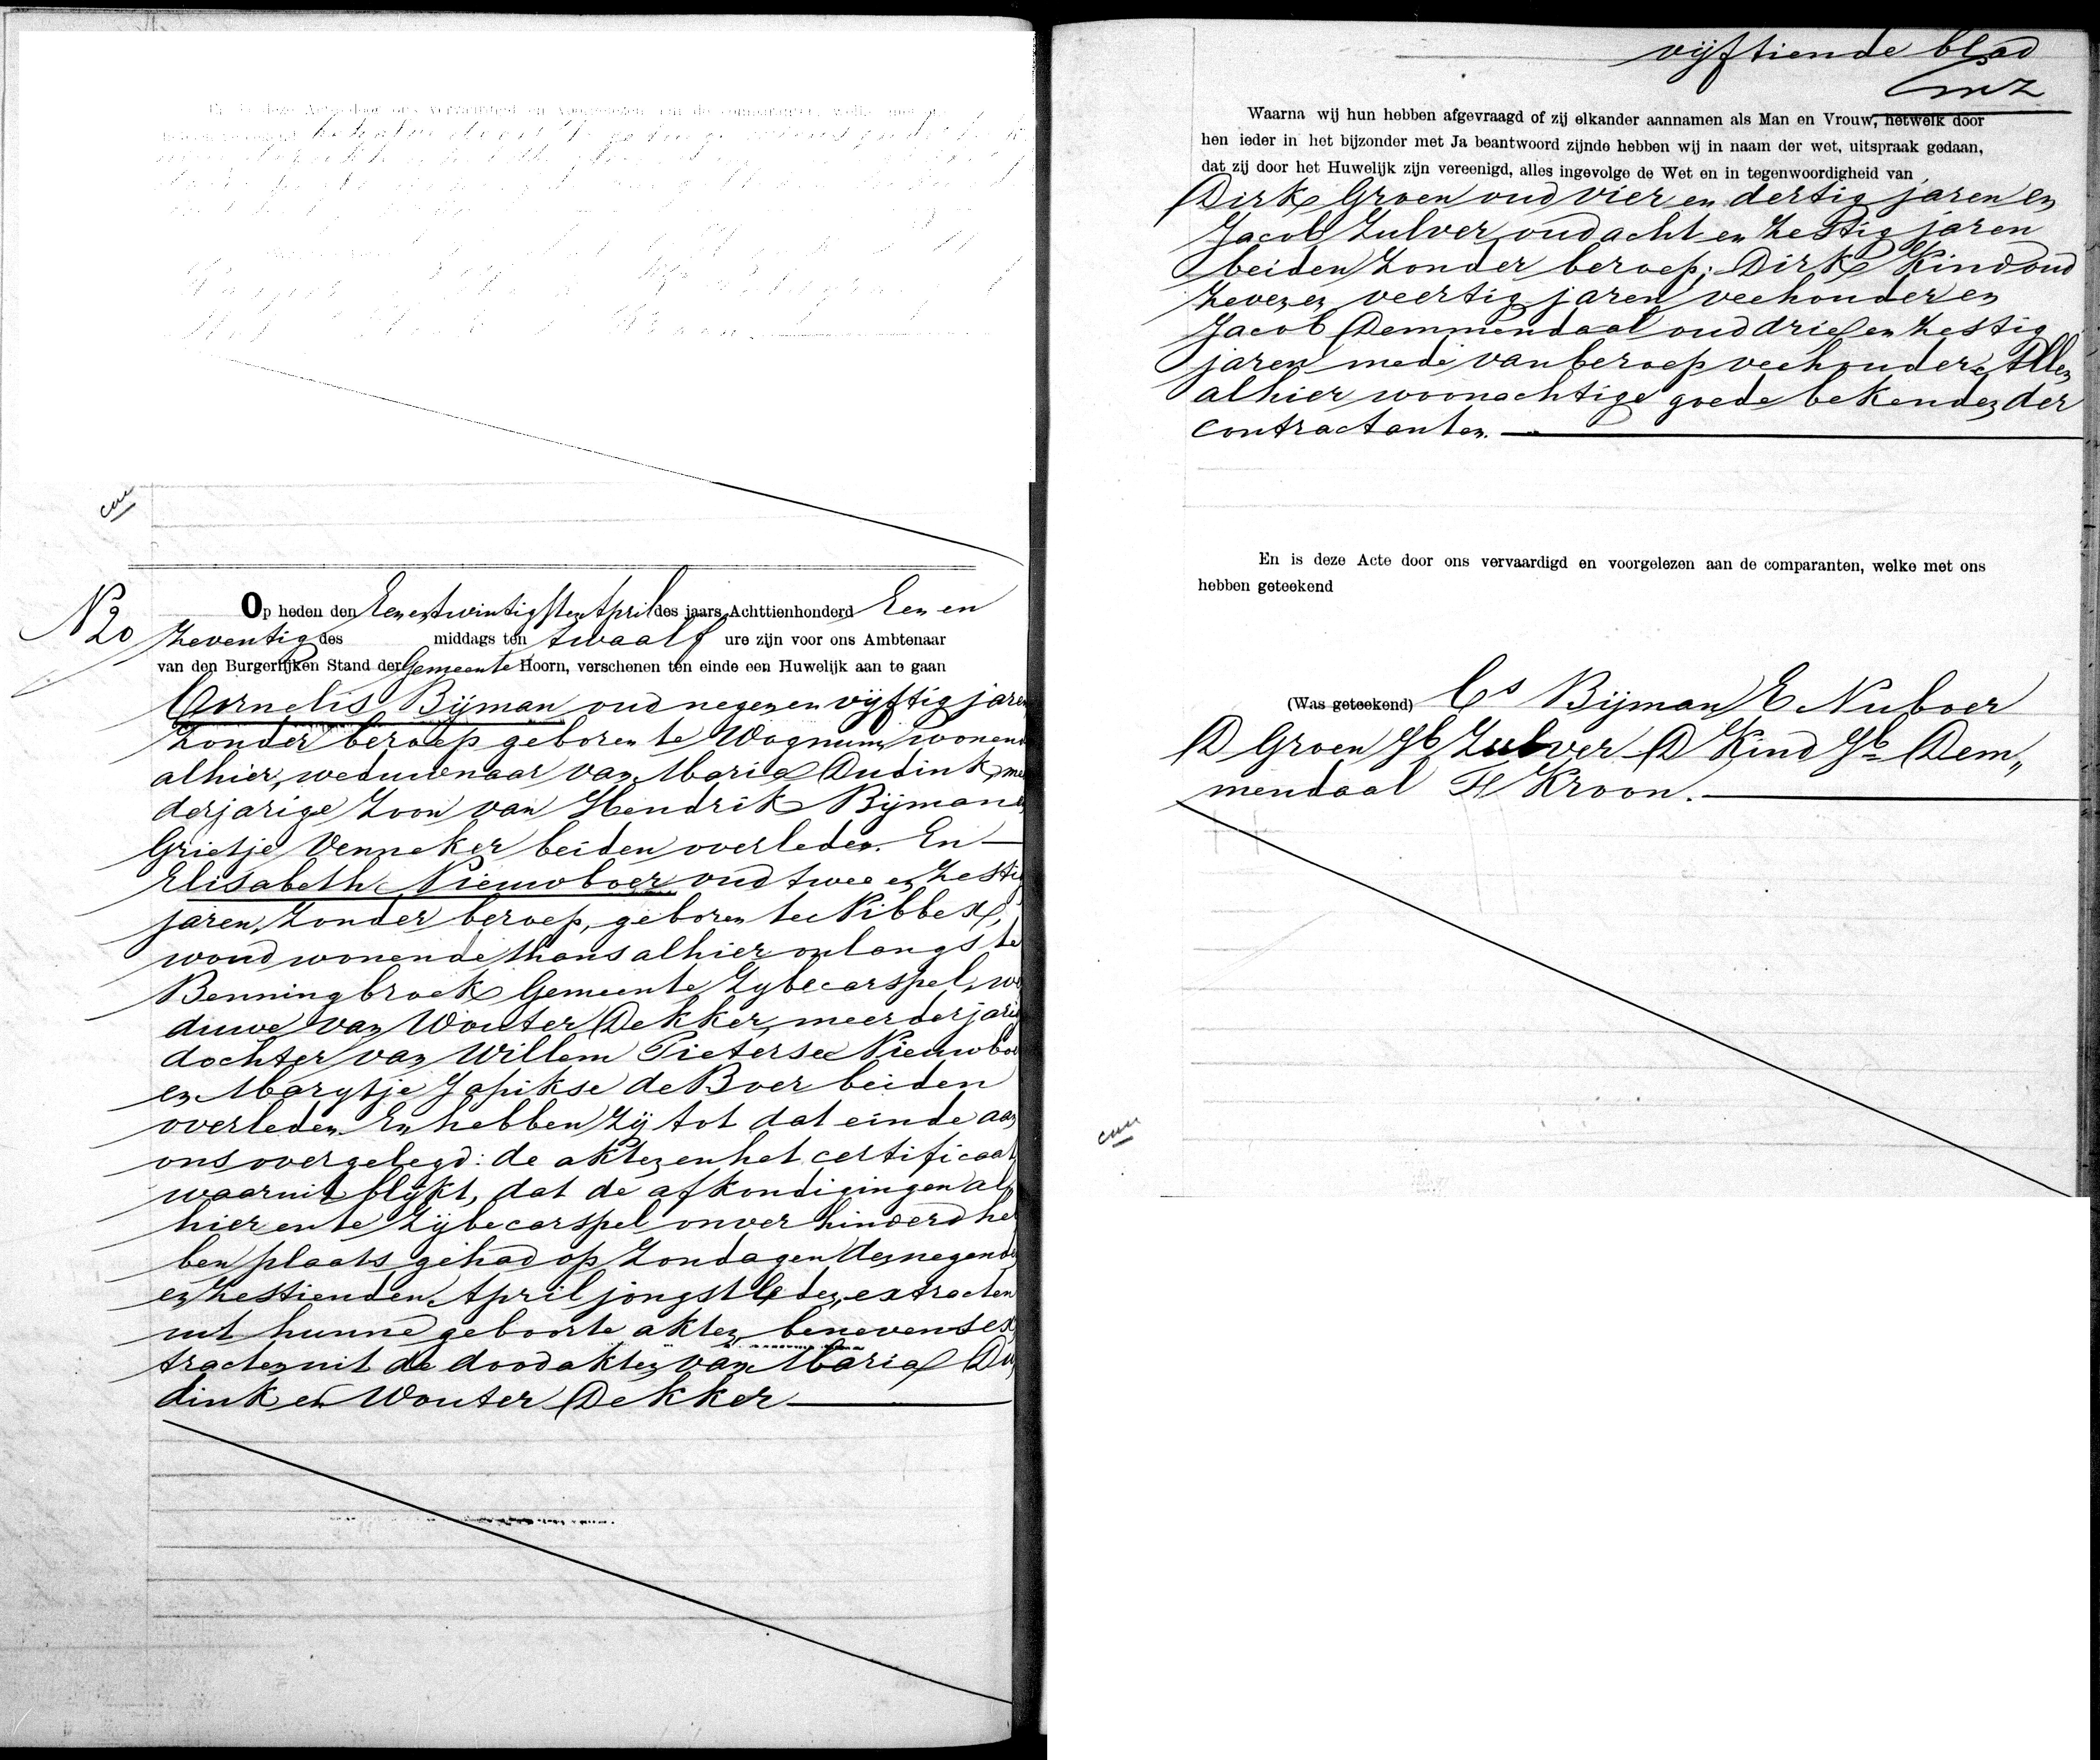 N 20
Op heden den Een en twintigsten April des jaars Achttienhonderd Een en
zeventig des middags ten twaalf ure zijn voor ons Ambtenaar
van den Burgerlijken Stand der Gemeente Hoorn, verschenen ten einde een Huwelijk aan te gaan
Cornelis Bijman oud negen en vijftig jaren
zonder beroep geboren te Wognum, wonend
alhier, weduwnaar van Maria Dudink, me
derjarige zoon van Hendrik Bijman en
Grietje Venneker beiden overleden. En
Elisabeth Nieuwboer oud twee en zestig
jaren, zonder beroep, geboren te Nibbex,
woud wonende thans alhier onlangs te
Benningbroek Gemeente Zybecarspel, we
duwe van Wouter Dekker, meerderjarig
dochter van Willem Pieterse Nieuwboe
en Marytje Japikse de Boer beiden
overleden. En hebben zij tot dat einde aan
ons overgelegd: de akten en het certificaat
waaruit blykt, dat de afkondigingen al
hier en te Zijbecarspel onverhinderd heb
ben plaats gehad op Zondagen den negende
en zestienden April jongstleden, extracten
uit hunne geboorte akten, benevens ex
tracten uit de doodakten van Maria Du
dink en Wouter Dekker
vijftiende blad
Waarna wij hun hebben afgevraagd of zij elkander aannamen als Man en Vrouw, hetwelk door
hen ieder in het bijzonder met Ja beantwoord zijnde hebben wij in naam der wet, uitspraak gedaan,
dat zij door het Huwelijk zijn vereenigd, alles ingevolge de Wet en in tegenwoordigheid van
Dirk Groen oud vier en dertig jaren en
Jacob Zulver, oud acht en zestig jaren
beiden zonder beroep; Dirk Kind oud
zeven en veertig jaren, veehouder en
Jacob Demmendaal oud drie en zestig
jaren mede van beroep veehouder. Allen
alhier woonachtige goede bekenden der
contractanten.
En is deze Acte door ons vervaardigd en voorgelezen aan de comparanten, welke met ons
hebben geteekend
(Was geteekend) Cs Bijman E Nuboer
D Groen Jb Zulver D Kind Jb Dem„
mendaal H Kroon.